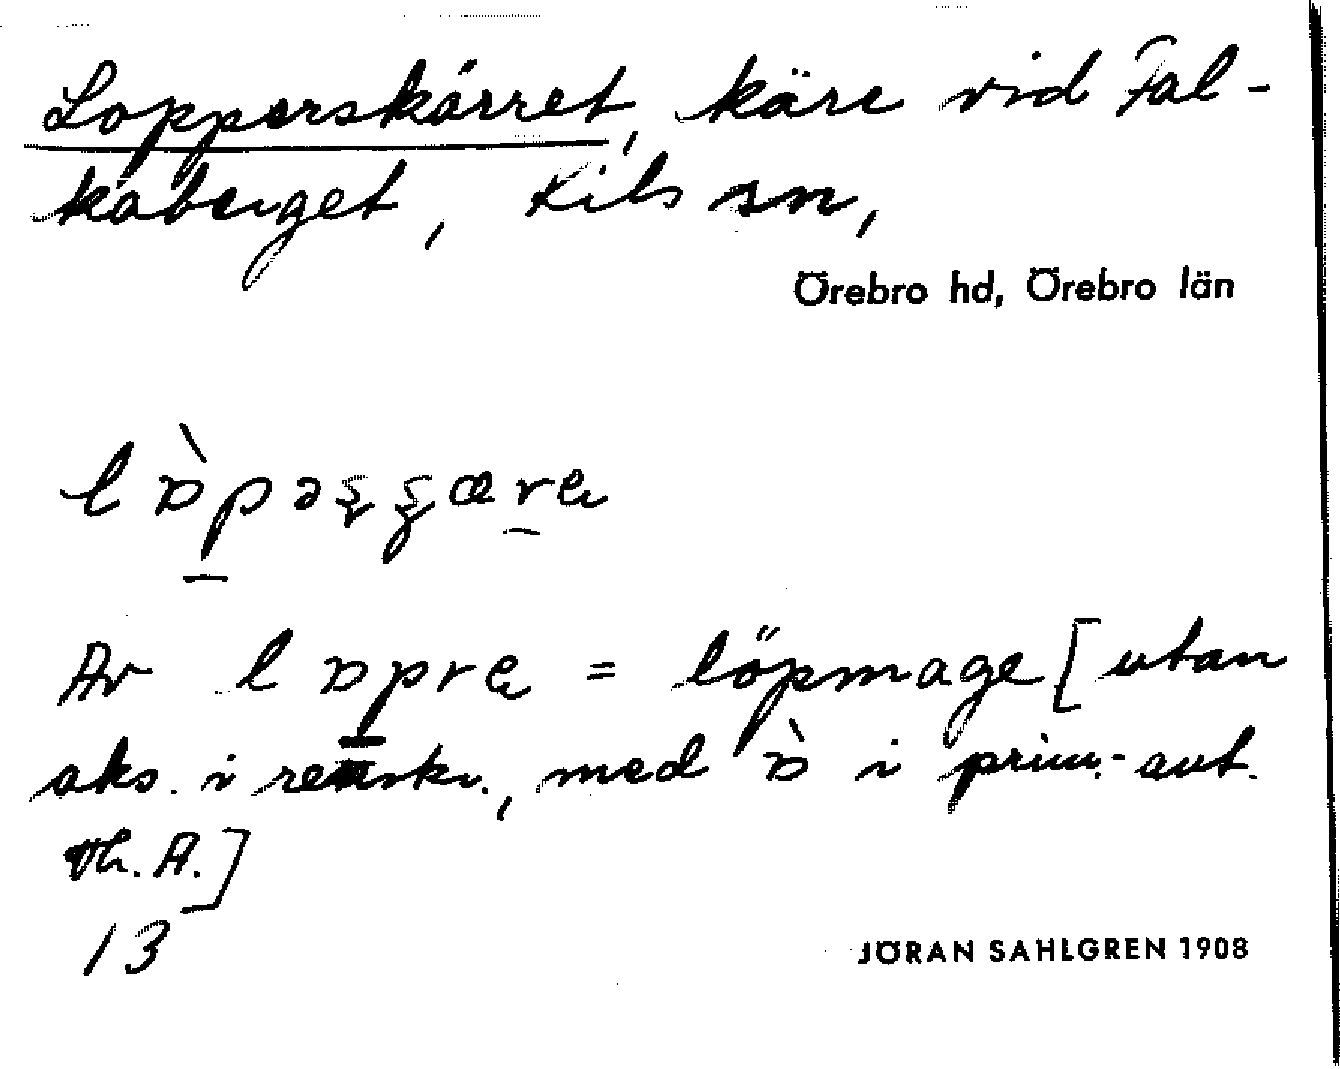 Lopperskärret, kärr vid Fal-
kaberget, Kils sn,
Örebro hd, Örebro län
Av = löpmage [utan
aks. i renskr., med ɒ̀ i prim.-ant.
Th. A.]
13
JÖRAN SAHLGREN 1908